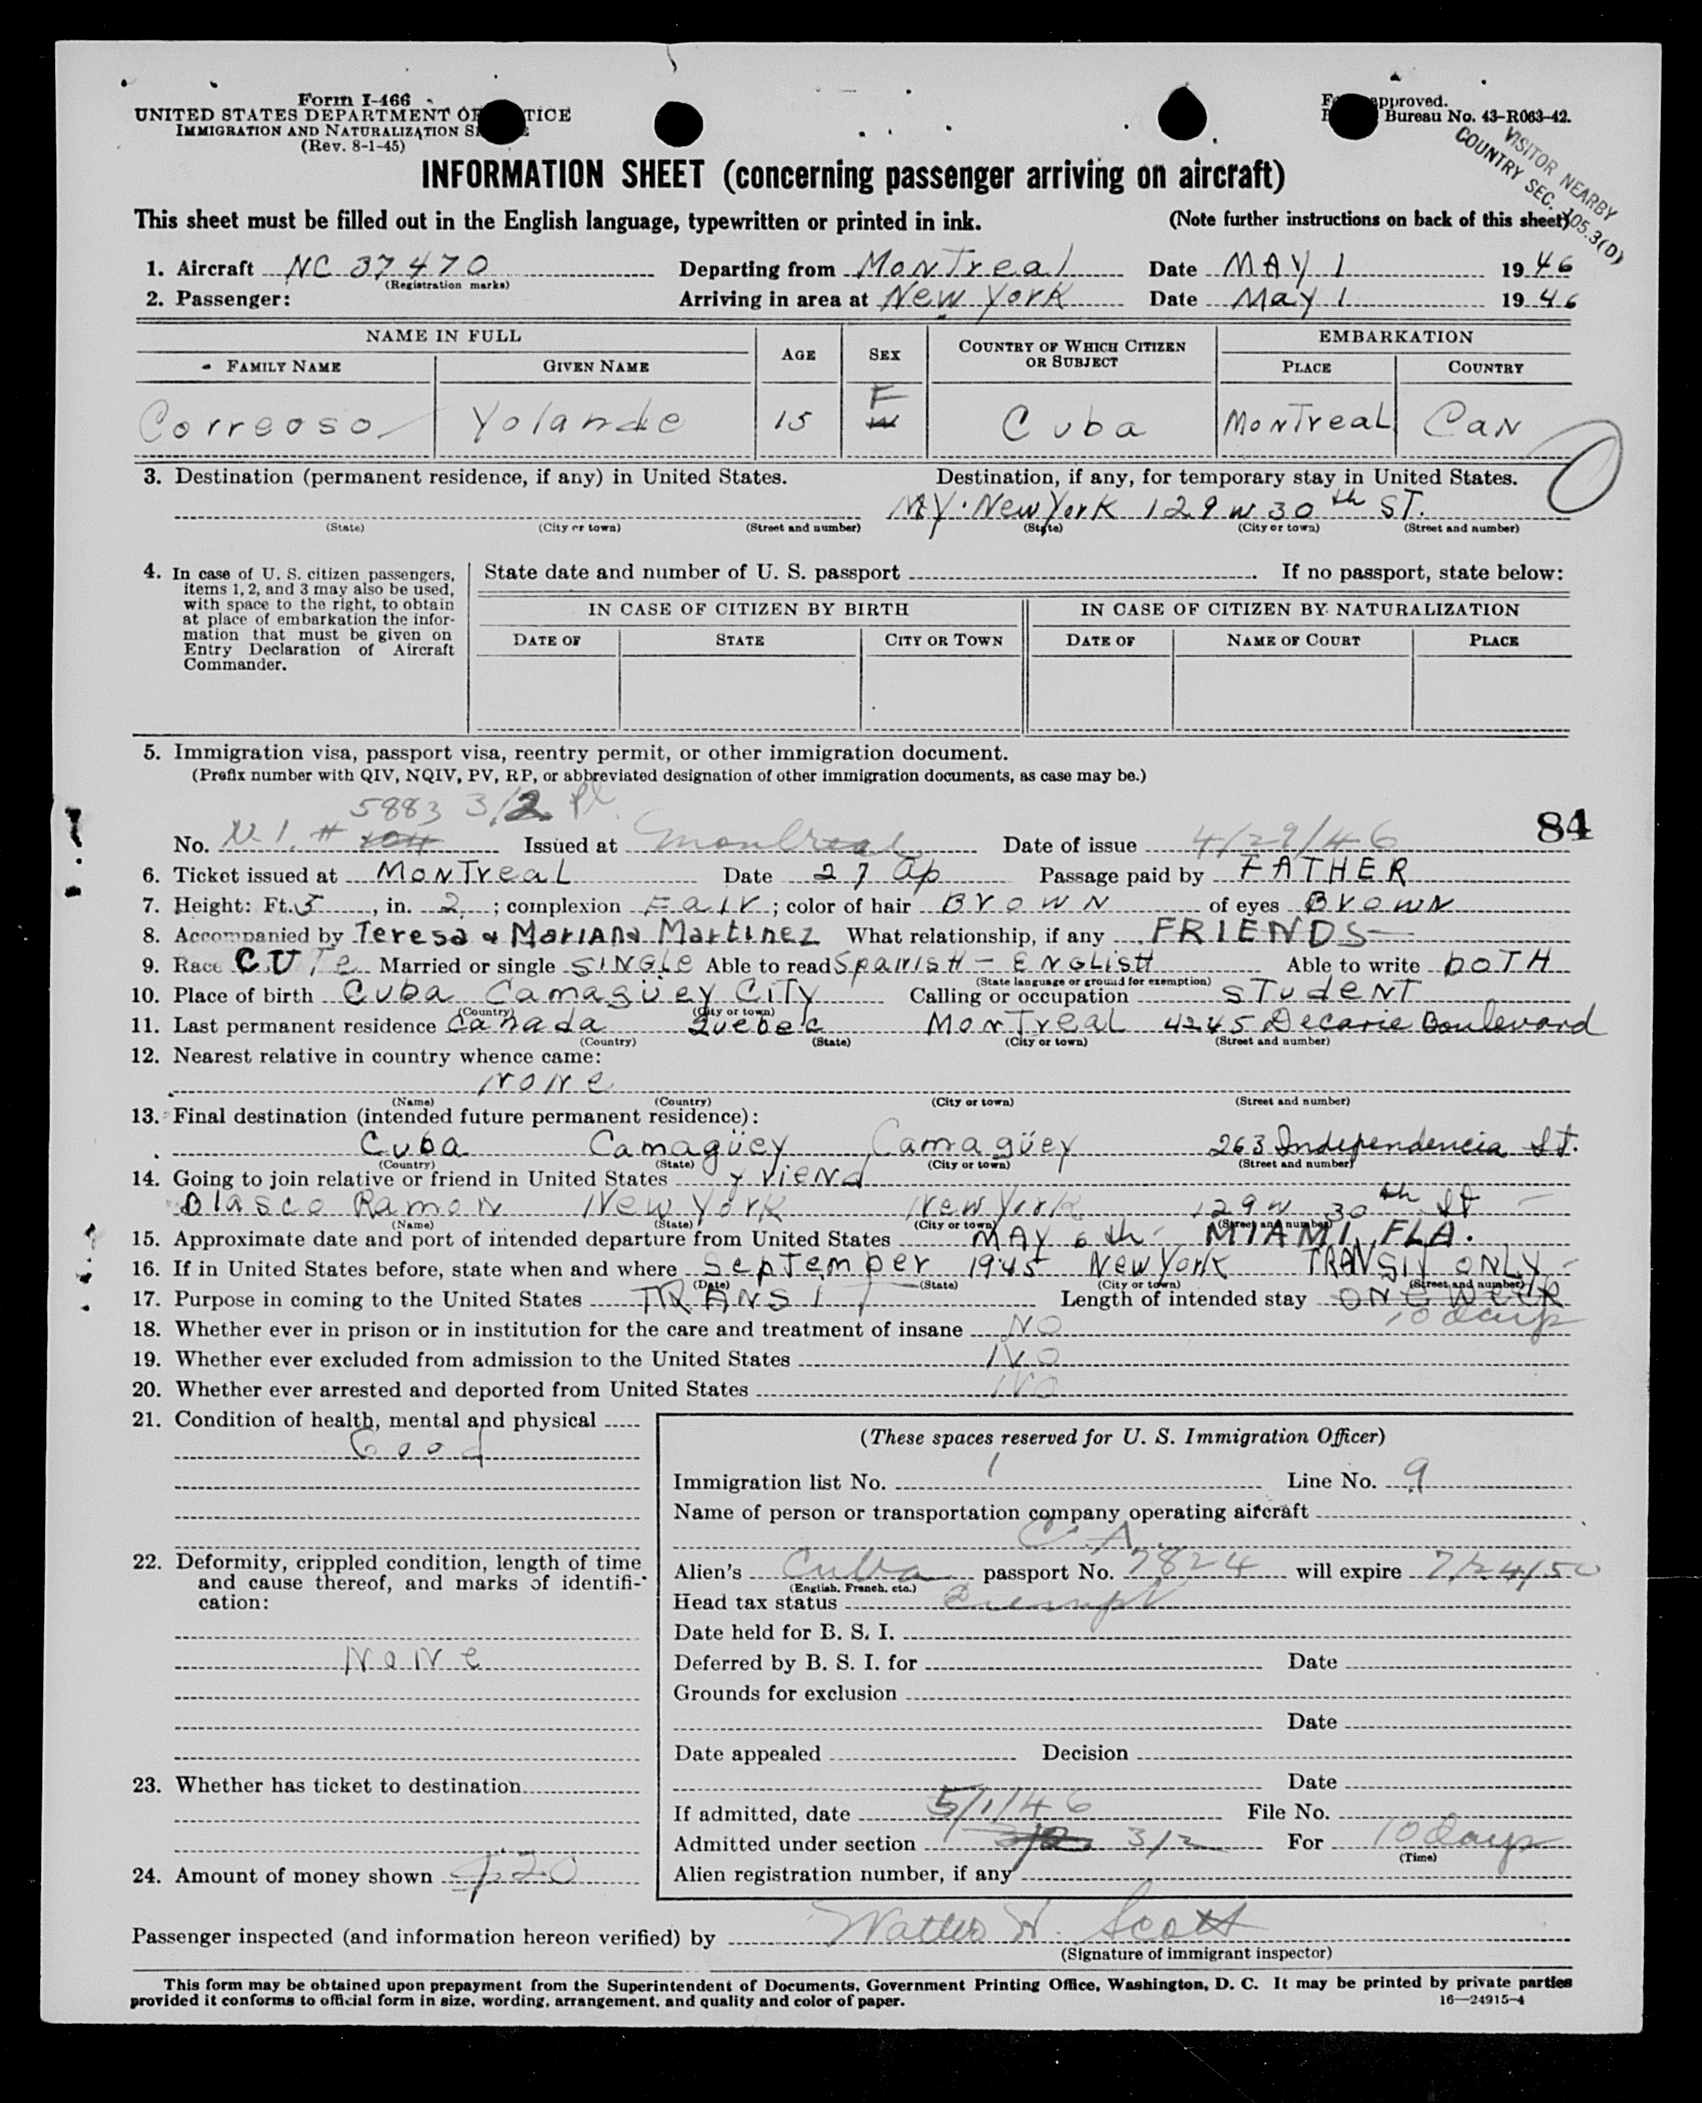 Form I-466
UNITED STATES DEPARTMENT OF TICE
IMMIGRATION AND NATURALIZATION S E
(Rev. 8-1-45)
F pproved.
B Bureau No. 43-R063-42.
VISITOR NEARBY
COUNTRY SEC. 105.3(D)
INFORMATION SHEET (concerning passenger arriving on aircraft)
This sheet must be filled out in the English language, typewritten or printed in ink. (Note further instructions on back of this sheet)
1. Aircraft NC 37470 Departing from MonTreal Date MAY 1 1946
(Registration marks)
2. Passenger: Arriving in area at New York Date May 1 1946
NAME IN FULL AGE SEX COUNTRY OF WHICH CITIZEN OR SUBJECT EMBARKATION
FAMILY NAME GIVEN NAME PLACE COUNTRY
F
Correoso Yolande 15 Cuba MonTreaL Can
3. Destination (permanent residence, if any) in United States. Destination, if any, for temporary stay in United States.
NY. New York 129 W 30th ST.
(State) (City or town) (Street and number) (State) (City or town) (Street and number)
4. In case of U. S. citizen passengers, items 1, 2, and 3 may also be used, with space to the right, to obtain at place of embarkation the information that must be given on Entry Declaration of Aircraft Commander.
State date and number of U. S. passport If no passport, state below:
IN CASE OF CITIZEN BY BIRTH IN CASE OF CITIZEN BY NATURALIZATION
DATE OF STATE CITY OR TOWN DATE OF NAME OF COURT PLACE
5. Immigration visa, passport visa, reentry permit, or other immigration document.
(Prefix number with QIV, NQIV, PV, RP, or abbreviated designation of other immigration documents, as case may be.)
5883 3/2
84
No. N.I. # Issued at Montreal Date of issue 4/29/46
6. Ticket issued at MonTreaL Date 27 Ap Passage paid by FATHER
7. Height: Ft. 5, in. 2; complexion Fair; color of hair Brown of eyes Brown
8. Accompanied by Teresa & Mariana Martinez What relationship, if any FRIENDS
9. Race Married or single SINGLe Able to read SpanisH - ENGLisH Able to write boTH
(State language or ground for exemption)
10. Place of birth Cuba Camagüey CiTy Calling or occupation STudeNT
(Country) (City or town)
11. Last permanent residence Canada Quebec MonTreaL 4245 Decarie Boulevard
(Country) (State) (City or town) (Street and number)
12. Nearest relative in country whence came:
None
(Name) (Country) (City or town) (Street and number)
13. Final destination (intended future permanent residence):
Cuba Camagüey Camagüey 263 Independencia St.
(Country) (State) (City or town) (Street and number)
14. Going to join relative or friend in United States friend
Blasco Ramon New York New York 129 W 30th St
(Name) (State) (City or town) (Street and number)
15. Approximate date and port of intended departure from United States MAY 6th - MIAMI, FLA.
16. If in United States before, state when and where SepTember 1945 New York TRANSIT ONLY
(Date) (State) (City or town) (Street and number)
17. Purpose in coming to the United States TRANSIT Length of intended stay ONE WEEK
10 days
18. Whether ever in prison or in institution for the care and treatment of insane NO
19. Whether ever excluded from admission to the United States NO
20. Whether ever arrested and deported from United States NO
21. Condition of health, mental and physical
Good
22. Deformity, crippled condition, length of time and cause thereof, and marks of identification:
None
23. Whether has ticket to destination
24. Amount of money shown $20
(These spaces reserved for U. S. Immigration Officer)
Immigration list No. 1 Line No. 9
Name of person or transportation company operating aircraft
C. A.
Alien's Cuba passport No. 7824 will expire 7/24/50
(English, French, etc.)
Head tax status Exempt
Date held for B. S. I.
Deferred by B. S. I. for Date
Grounds for exclusion
Date
Date appealed Decision
Date
If admitted, date 5/1/46 File No.
Admitted under section 3/2 For 10 days
(Time)
Alien registration number, if any
Passenger inspected (and information hereon verified) by Walter H. Scott
(Signature of immigrant inspector)
This form may be obtained upon prepayment from the Superintendent of Documents, Government Printing Office, Washington, D. C. It may be printed by private parties
provided it conforms to official form in size, wording, arrangement, and quality and color of paper. 16—24915-4